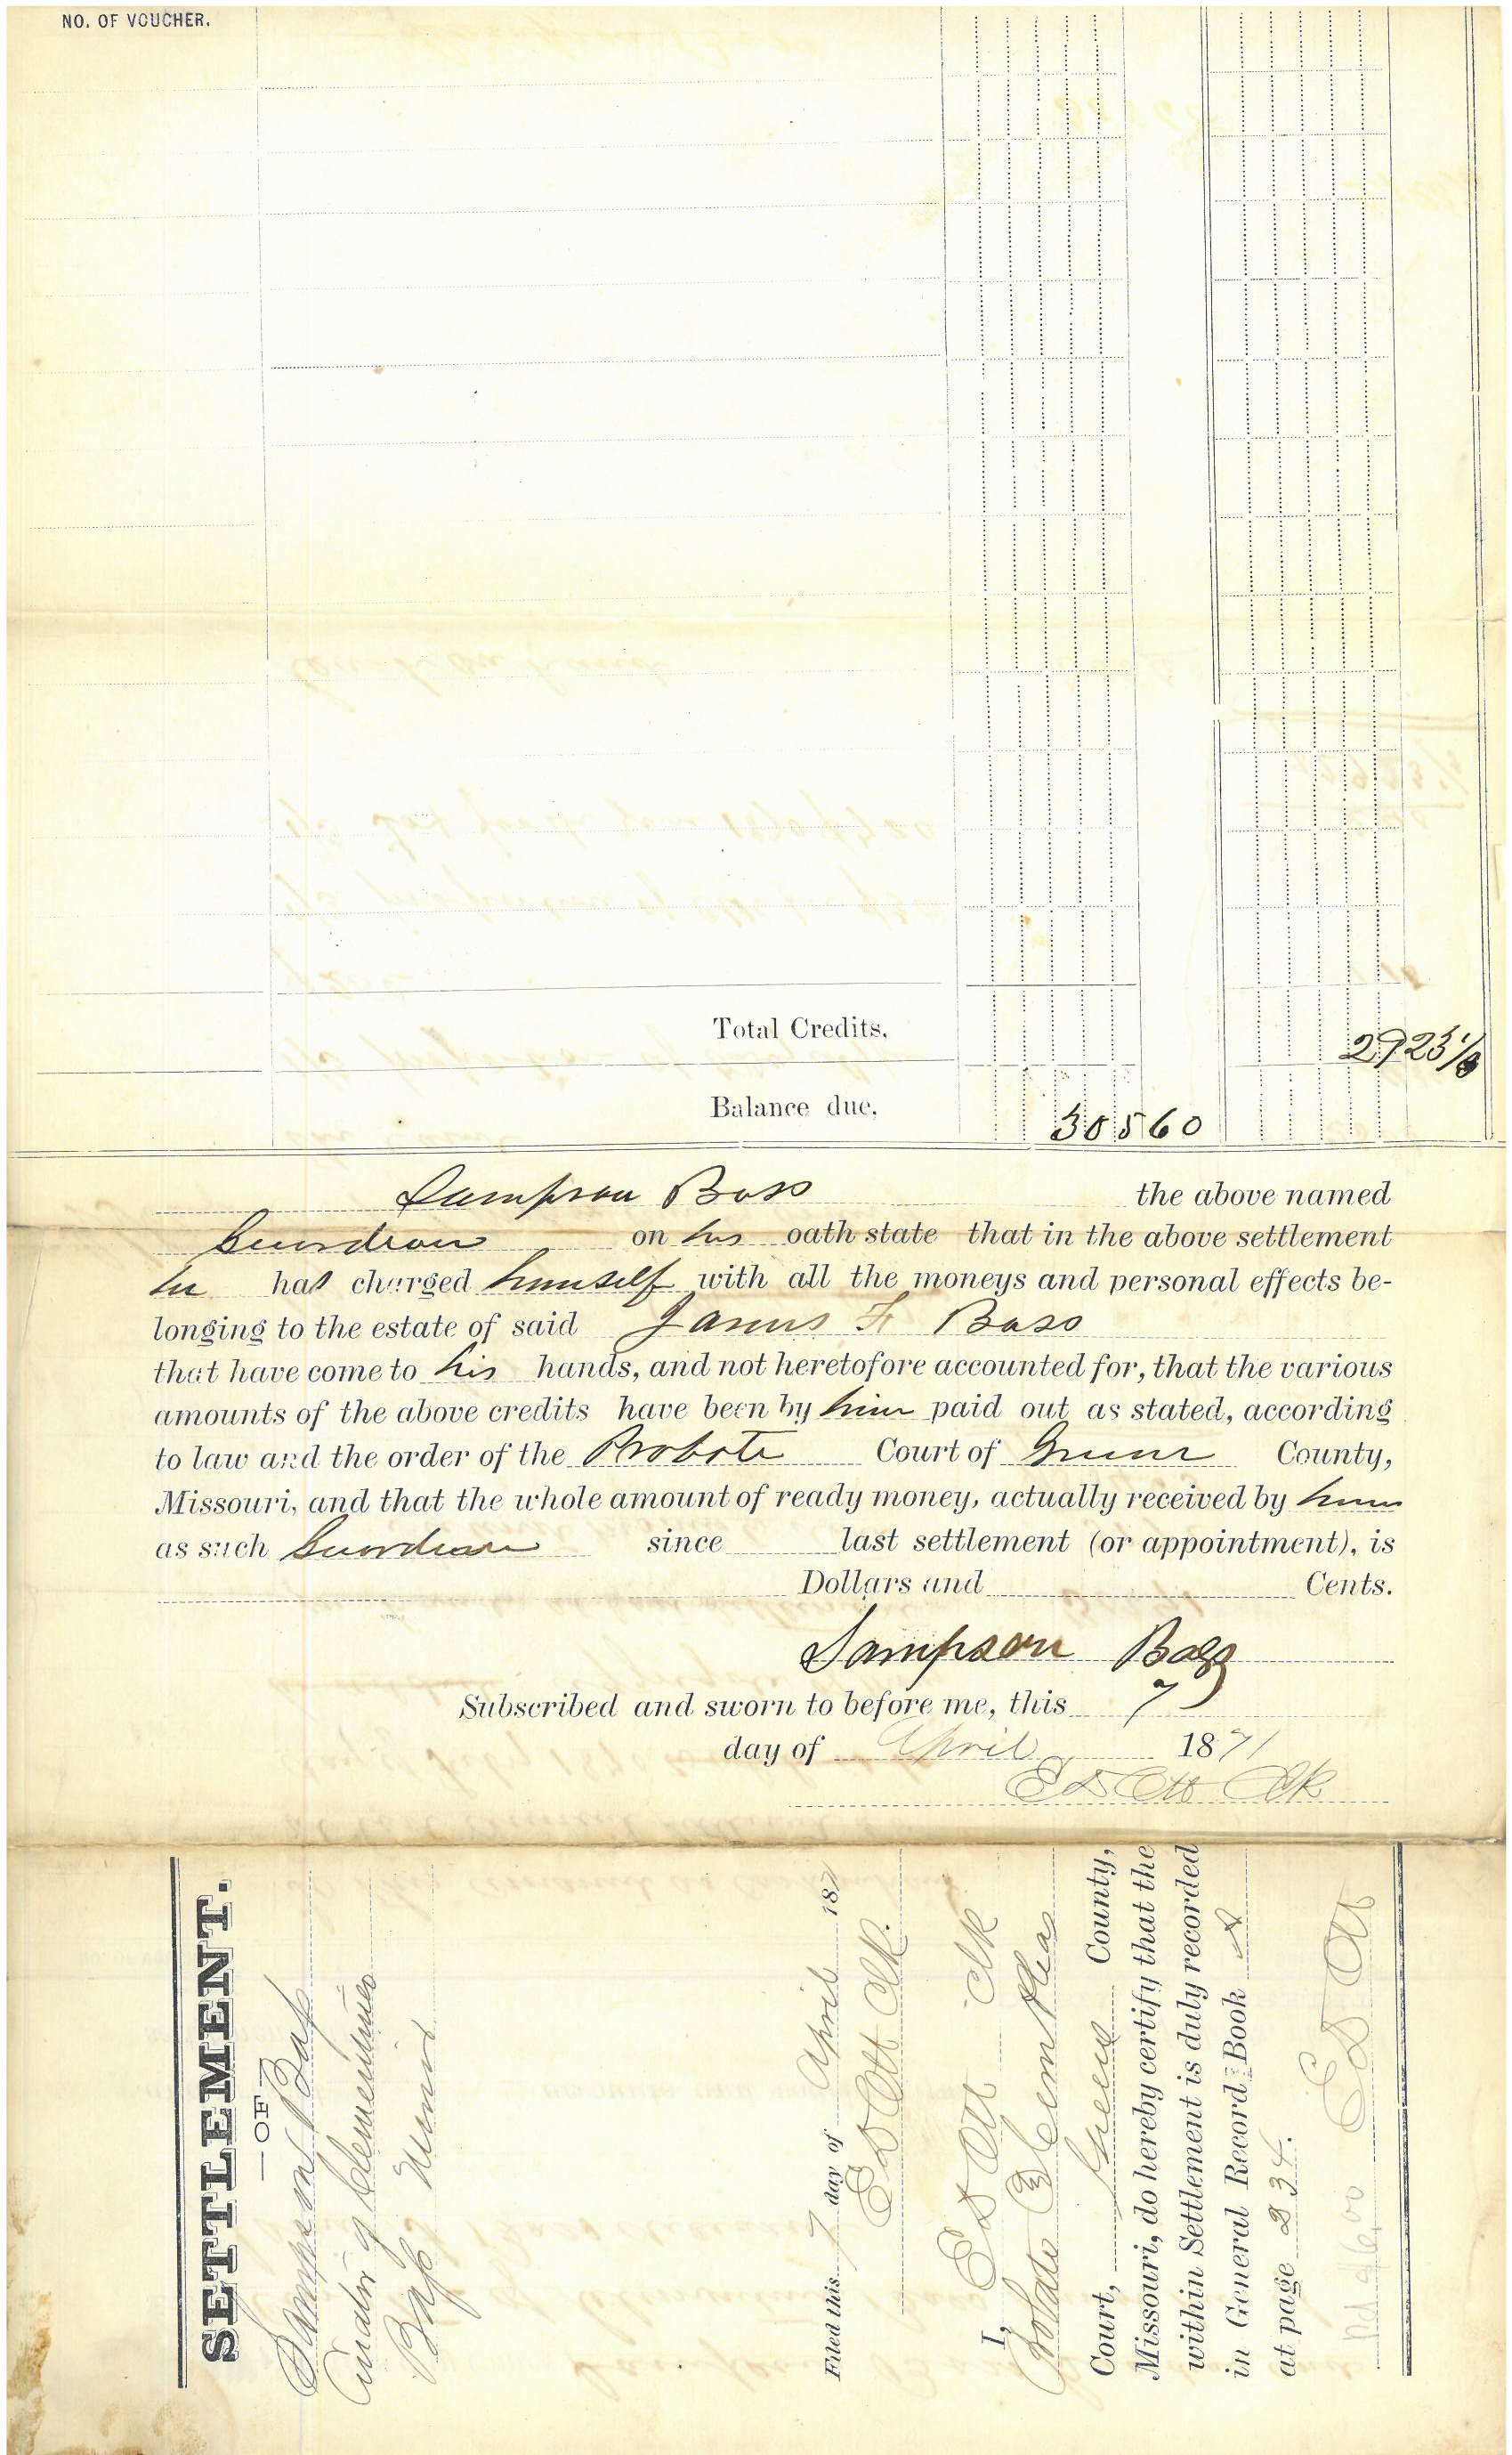 NO. OF VOUCHER.
Total Credits,
Balance due,
30560
Sampson Bass the above named
Guardian on his oath state that in the above settlement
he has charged himself with all the moneys and personal effects be-
longing to the estate of said James F Bass
that have come to his hands, and not heretofore accounted for, that the various
amounts of the above credits have been by him paid out as stated, according
to law and the order of the Probate Court of Greene County,
Missouri, and that the whole amount of ready money, actually received by him
as such Guardian since last settlement (or appointment), is
Dollars and Cents.
Sampson Bass
Subscribed and sworn to before me, this 7
day of April 1871
E D Ott Clk
SETTLEMENT.
— OF —
Sampson Bass
Curator of Clementines
Bass Minor
Filed this 7 day of April 187
E D Ott Clk.
I, E D Ott Clk
Probate & Com Pleas
Court, Greene County,
Missouri, do hereby certify that the
within Settlement is duly recorded
in General Record Book A
at page 234.
E D Ott